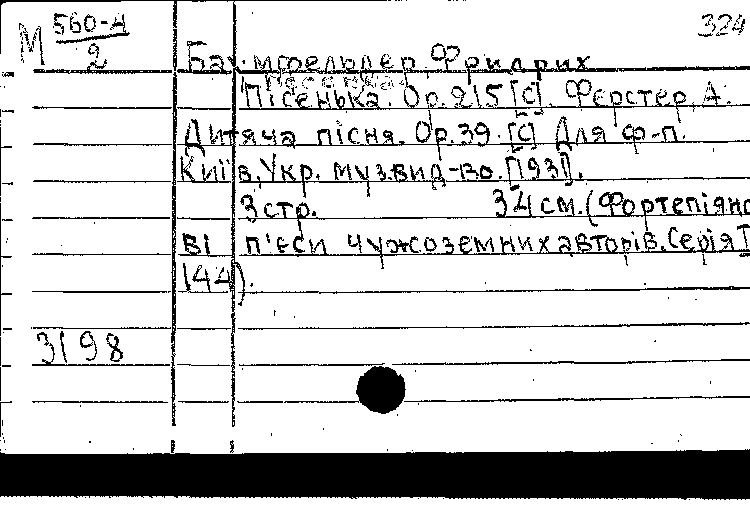 М 560-4/2 324
Баумфельдер, Фридрих
Пісенька. Op. 215 [C]. Ферстер, А.
Дитяча пісня. Op. 39. [C] Для ф-п.
Київ, Укр. муз. вид-во. [193].
3 стр. 34 см. (Фортепіяно
ві п'єси чужоземних авторів. Серія I
144).
3198